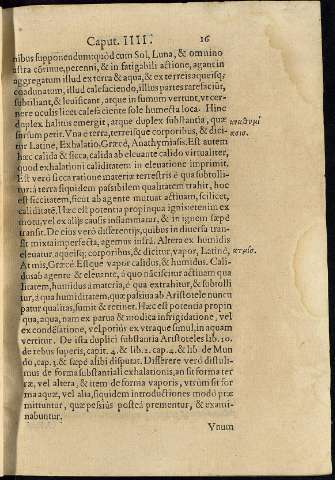 Caput. IIII. 16
nibus supponendum: quòd cum Sol, Luna, & omnino
astra cõtinuè, perenni, & in fatigabili actione, agant in
aggregatum illud ex terra & aqua, & ex terreis aqueisq;
coadunatum, illud calefaciendo, illius partes rarefaciũt,
subtiliant, & leuificant, atque in fumum vertunt, vt cer-
nere oculis licet calefaciente sole humecta loca. Hinc
duplex halitus emergit, atque duplex substantia, quæ
sursum petit. Vna è terra, terreisque corporibus, & dici-
tur Latinè, Exhalatio, Græcè, Anathymiasis. Est autem
hæc calida & sicca, calida ab eleuante calido virtualiter,
quod exhalationi caliditatem in eleuatione imprimit.
Est verò sicca ratione materiæ terrestris è qua subtolli-
tur: à terra siquidem passibilem qualitatem trahit, hoc
est siccitatem, sicut ab agente mutuat actiuam, scilicet,
caliditatẽ. Hæc est potentia propinqua ignis: etenim ex
motu, vel ex alijs causis inflammatur, & in ignem sæpè
transit. De eius verò differentijs, quibus in diuersa tran-
sit mixta imperfecta, agemus infrà. Altera ex humidis
eleuatur aqueisq; corporibus, & dicitur, vapor, Latinè,
Atmis, Græcè. Estque vapor calidus, & humidus. Cali-
dus ab agente & eleuante, à quo nãciscitur actiuam qua
litatem, humidus à materia, è qua extrahitur, & subtolli
tur, à qua humiditatem, quæ passiua ab Aristotele nuncu
patur qualitas, sumit & retinet. Hæc est potentia propin
qua, aqua, nam ex parua & modica infrigidatione, vel
ex condẽsatione, vel potiùs ex vtraque simul, in aquam
vertitur. De ista duplici substantia Aristoteles lib. 10.
de rebus superis, capit. 4. & lib. 2. cap. 4. & lib. de Mun
do, cap. 3. & sæpè alibi disputat. Differere verò distuli-
mus de forma substantiali exhalationis, an sit forma ter
ræ, vel altera, & item de forma vaporis, vtrùm sit for
ma aquæ, vel alia, siquidem introductiones modò præ
mittuntur, quæ pressiùs posteà prementur, & exami-
nabuntur.
Vnum
ἀναθυμί
ασις.
ἀτμίς.